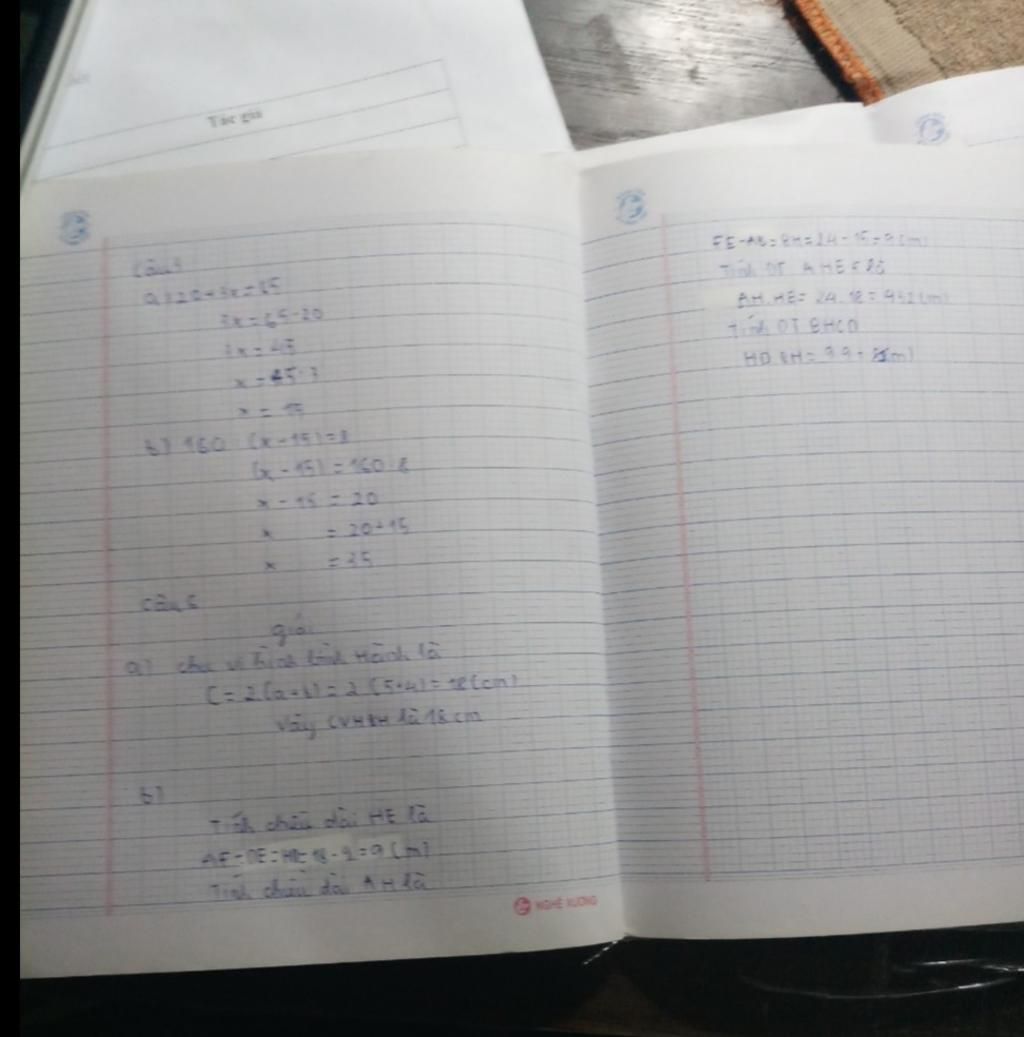 Tác giả
Câu 4
a) 20 + 3x = 65
3x = 65 - 20
3x = 45
x = 45 : 3
x = 15
b) 160 : (x - 15) = 8
(x - 15) = 160 : 8
x - 15 = 20
x = 20 + 15
x = 35
Câu 5
giải
a) chu vi hình bình Hành là
C = 2.(a+b) = 2.(5+4) = 18 (cm)
Vậy CVHBH là 18 cm
b)
Tính chiều dài HE là
AF - DE = HD = 18 - 9 = 9 (m)
Tính chiều dài AH là
NGHÉ XƯƠNG
FE - AB = BH = 24 - 15 = 9 (m)
Tính DT AHEF là
AH . HE = 24 . 18 = 432 (m)
Tính DT BHCD
HD . BH = 9.9 = (m)